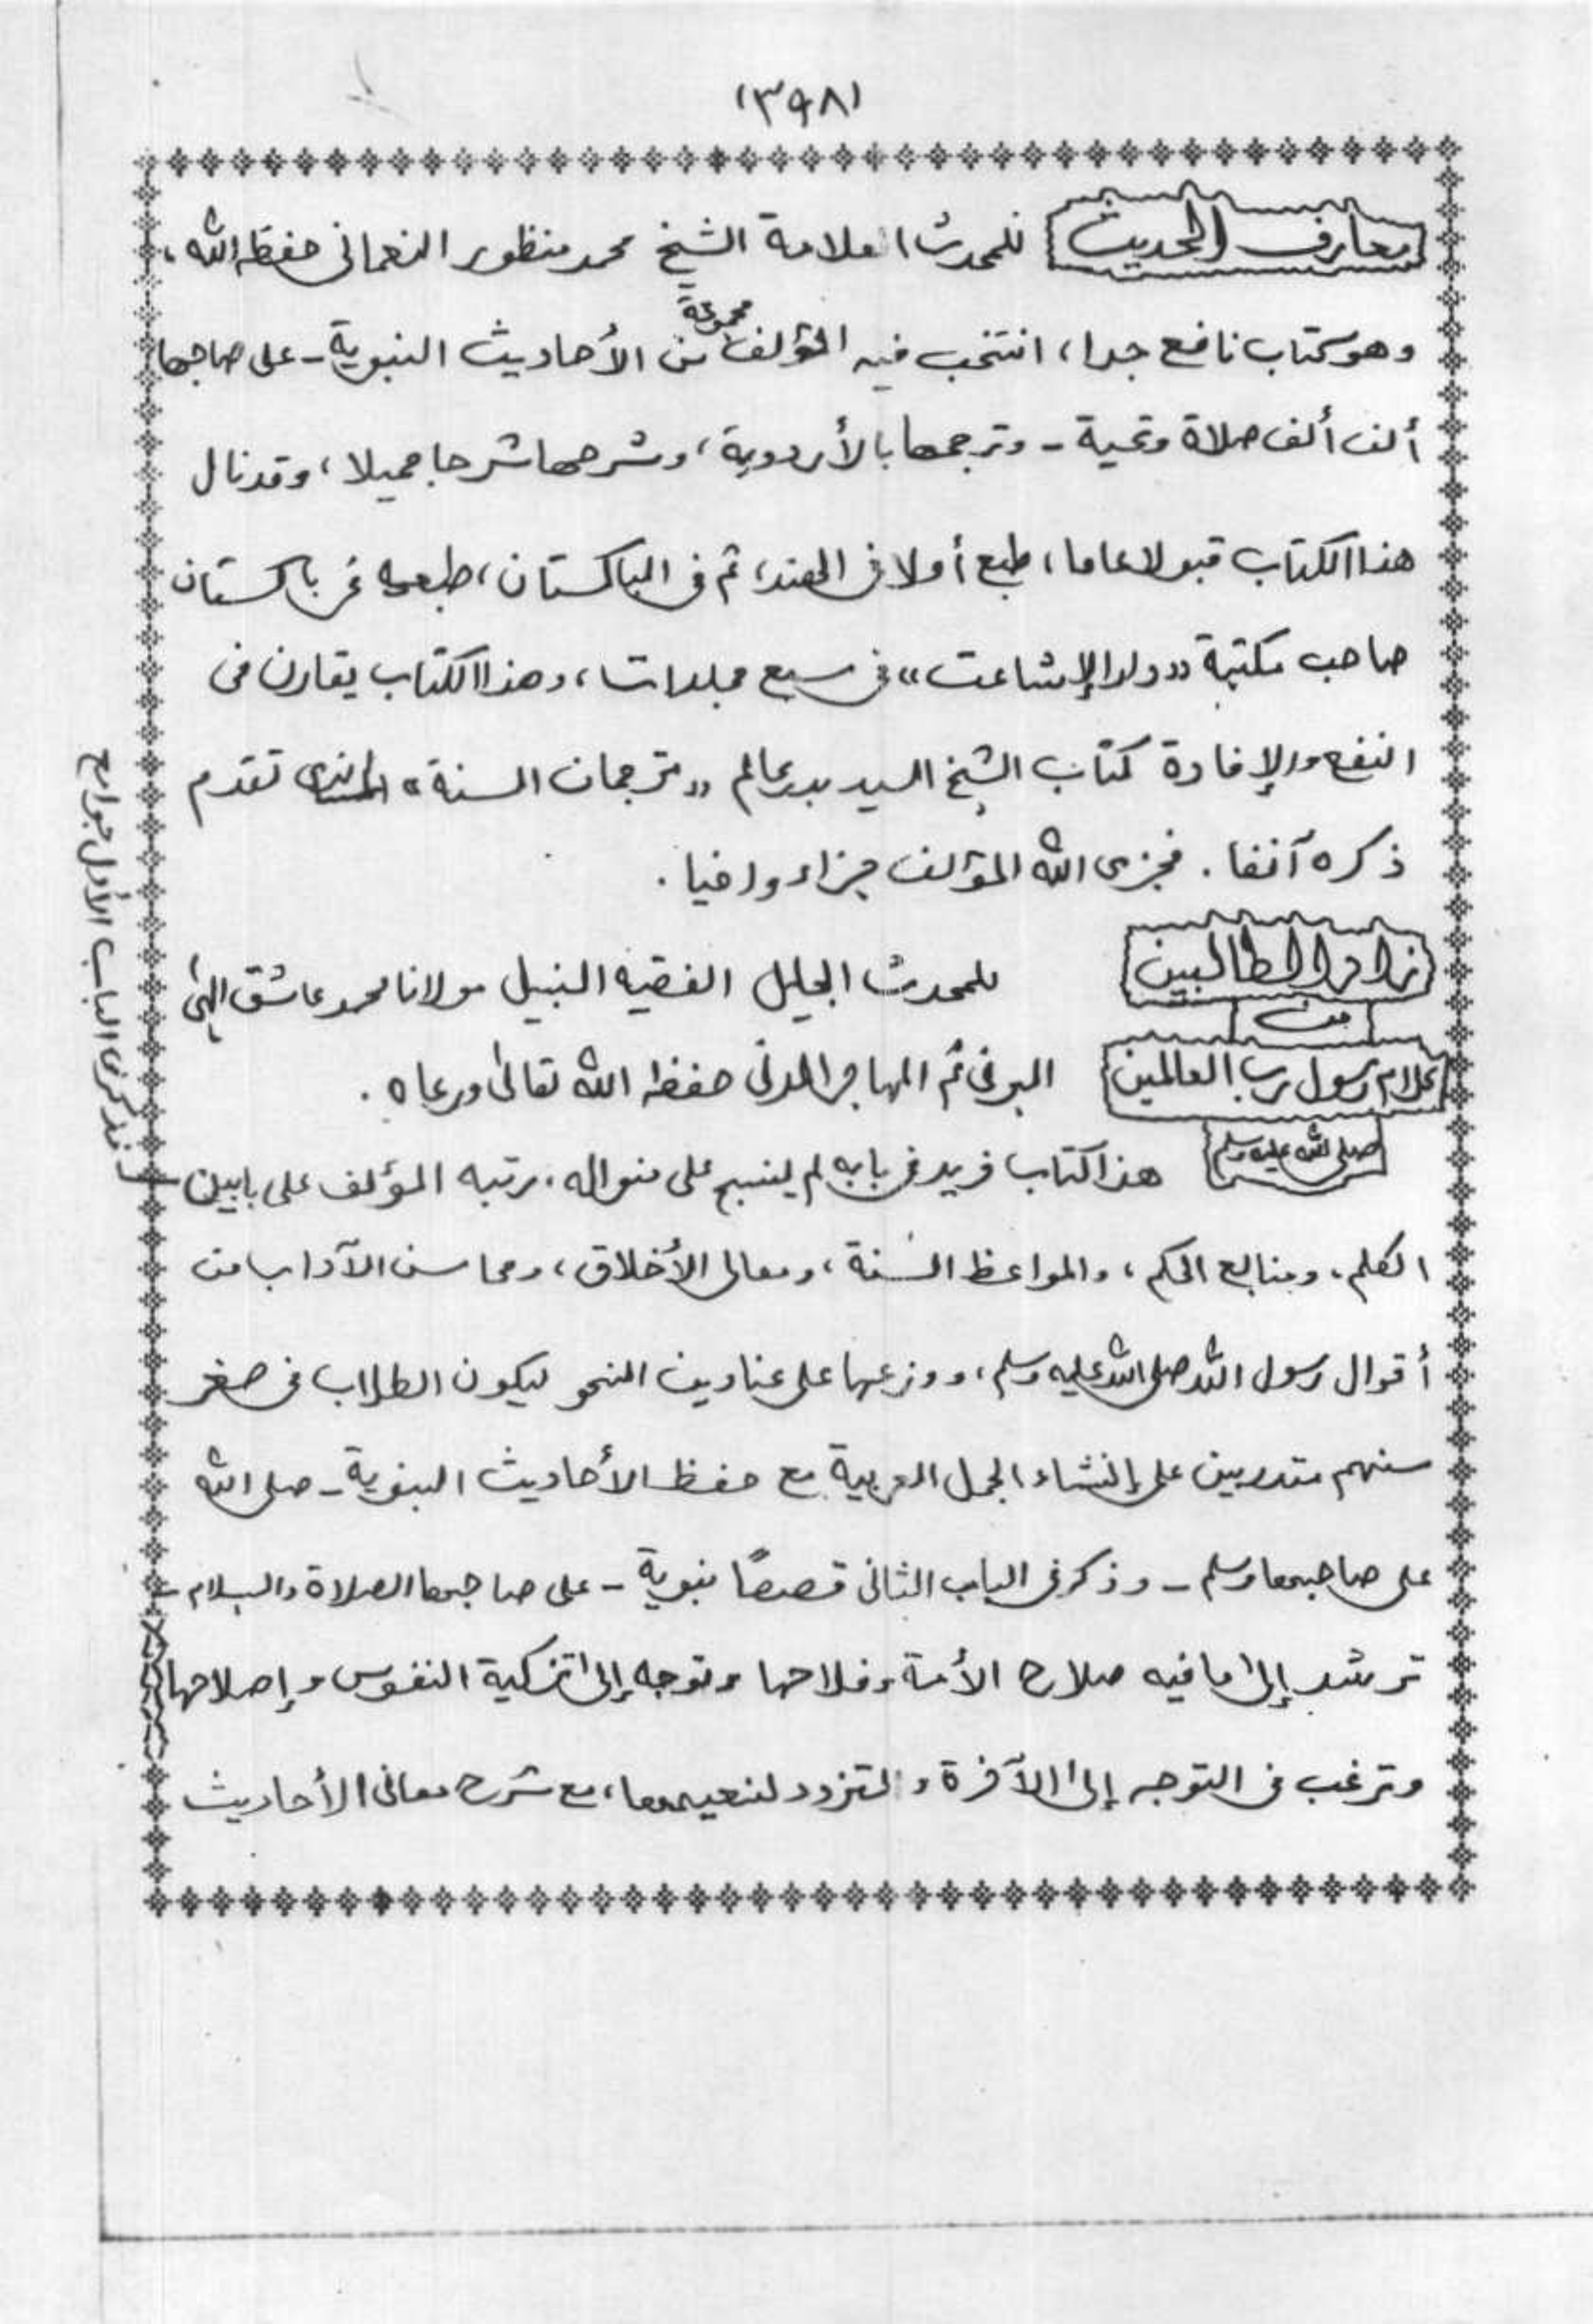 (٣٩٨)
معارف الحديث للمحدث العلامة الشيخ محمد منظور النعمانى حفظه الله،
وهو كتاب نافع جدا، انتخب فيه المؤلف مجموعة من الأحاديث النبوية - على صاحبها
ألف ألف صلاة وتحية - وترجمها بالأردوية، وشرحها شرحا جميلا، وقد نال
هذا الكتاب قبولا عاما، طبع أولا فى الهند، ثم فى الباكستان، طبعه فى باكستان
صاحب مكتبة «دار الإشاعت» فى سبع مجلدات، وهذا الكتاب يقارن فى
النفع والإفادة كتاب الشيخ السيد بدر عالم «ترجمان السنة» الذى تقدم
ذكره آنفا. فجزى الله المؤلف جزاء وافيا.
زاد الطالبين للمحدث الجليل الفقيه النبيل مولانا محمد عاشق إلهى
من
كلام رسول رب العالمين البرنى ثم المهاجر المدنى حفظه الله تعالى ورعاه.
صلى الله عليه وسلم هذا كتاب فريد فى بابه لم ينسج على منواله، رتبه المؤلف على بابين
فذكر فى الباب الأول جوامع
الكلم، ومنابع الحكم، والمواعظ الحسنة، ومعالى الأخلاق، ومحاسن الآداب من
أقوال رسول الله صلى الله عليه وسلم، ووزعها على عناوين النحو ليكون الطلاب فى صغر
سنهم متدربين على إنشاء الجمل العربية مع حفظ الأحاديث النبوية - صلى الله
على صاحبها وسلم - وذكر فى الباب الثانى قصصًا نبوية - على صاحبها الصلاة والسلام -
ترشد إلى ما فيه صلاح الأمة وفلاحها وتوجه إلى تزكية النفوس وإصلاحها
وترغب فى التوجه إلى الآخرة والتزود لنعيمها، مع شرح معانى الأحاديث